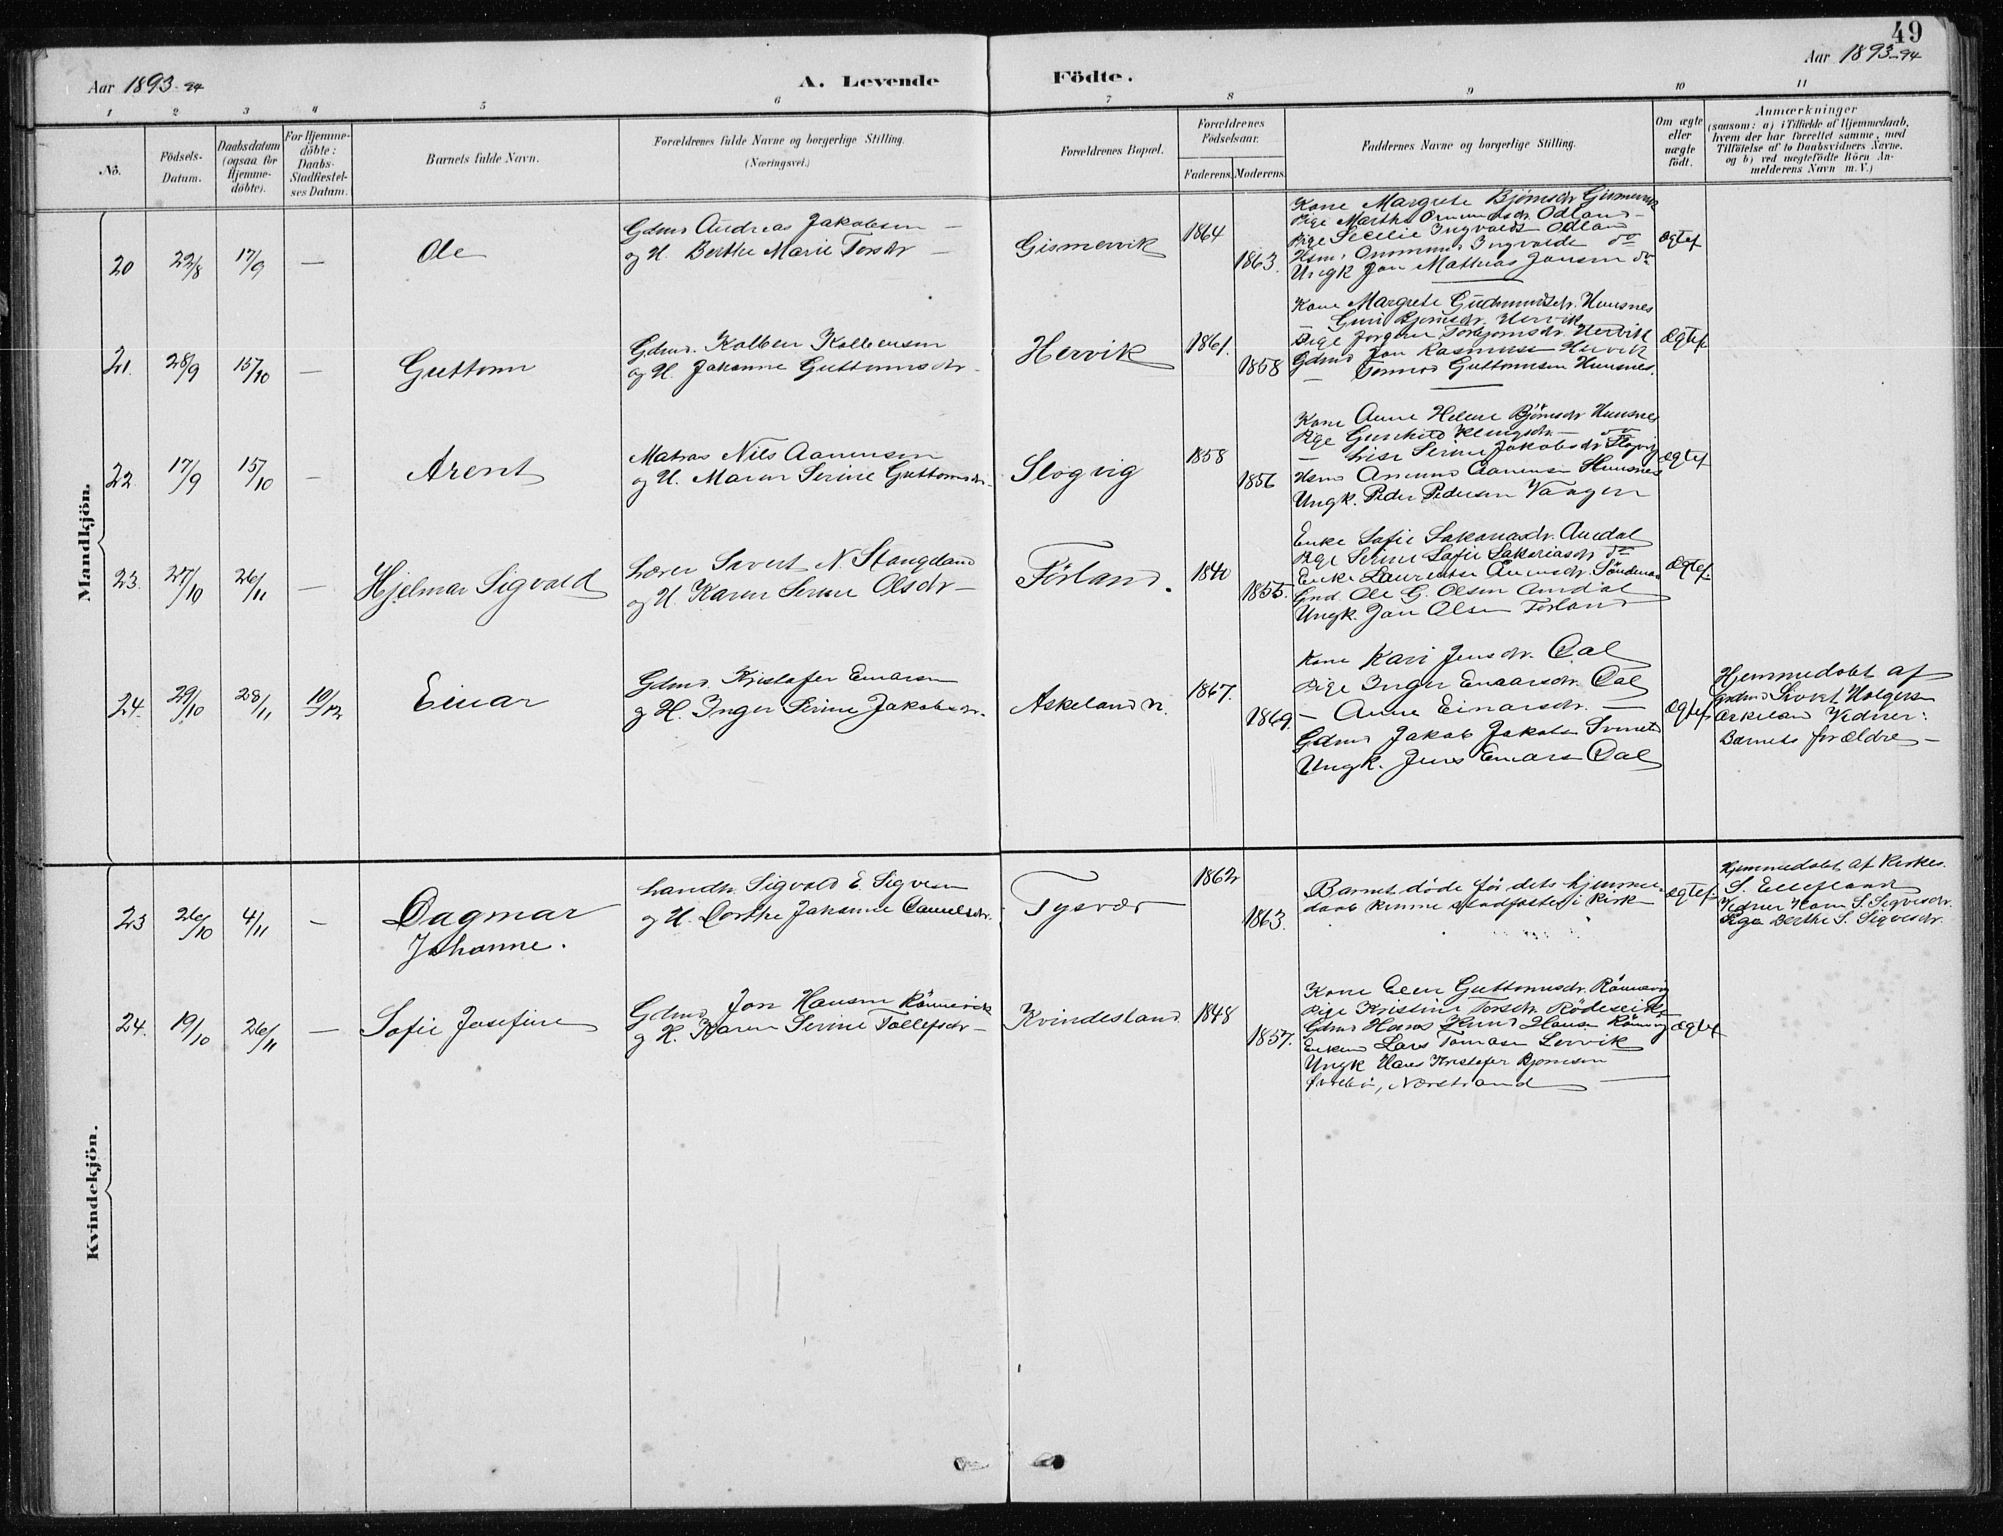 49
Aar 1893-94
A. Levende Fødte.
Aar 1893-94
1 2 3 4 5 6 7 8 9 10 11
No.
Födsels-Datum.
Daabsdatum (ogsaa for Hjemme-döbte).
For Hjemme-döbte: Daabs-Stadfæstel-ses Datum.
Barnets fulde Navn.
Forældrenes fulde Navne og borgerlige Stilling.
(Næringsvei.)
Forældrenes Bopæl.
Forældrenes Födselsaar.
Faderens. Moderens.
Faddernes Navne og borgerlige Stilling.
Om ægte eller uægte födt.
Anmærkninger
(saasom: a) i Tilfælde af Hjemmedaab,
hvem der har forrettet samme, med
Tilföielse af to Daabsvidners Navne,
og b) ved uægtefödte Börn An-
melderens Navn m. V.)
Mandkjön.
20 22/8 17/9 — Ole
Gdmd Andreas Jakobsen —
og H. Berthe Marie Torsdr —
Gismervik 1864 1863.
Kone Margrete Bjørnsdr Gismervik
Pige Marthe Omundsdr. Odland —
Pige Secilie Ingvaldsdr Odland
Hsmd Ommund Ingvalds do
Ungk Jon Mathias Jansen do
Ægtef
21. 28/9 15/10 — Guttorm
Gdmd. Kolben Kolbensen
og H. Johanne Guttormsdr.
Hervik 1861. 1858
Kone Margrete Gudmundsdr. Huusnes
— Guri Bjørnsdr. Hervik
Pige Jørgine Torbjørnsdr. Hervik
Gdmd Jon Rasmussen Hervik
— Tormod Guttormsen Huusnes.
Ægtef
22 17/9 15/10 — Arent
Matros Nils Aanensen
og H. Maren Serine Guttormsdr.
Slogvig 1858 1856
Kone Anne Helene Bjørnsdr Huusnes
Pige Gunhild — do
— Lise Serine Jakobsdr Slogvig
Hsmd Omund Aanensen Huusnes
Ungk. Peder Pedersen Vaagen
Ægtef
23. 27/10 26/11 — Hjelmar Sigvald
Lærer Sivert N. Stangeland
og H. Karen Serine Olsdr —
Førland. 1840 1855.
Enke Sofie Sakariasdr. Amdal
Pige Serine Sofie Sakariasdr do
Enke Laurentse
Gmd. Ole G. Olsen Amdal
Ungk. Jon Olsen Førland
Ægtef.
24. 29/10 28/11 10/12 Einar
Gdmd. Kristofer Einarsen
og H. Inger Serine Jakobsdr.
Askeland n. 1867. 1869.
Kone Kari Jensdr. Dal
Pige Inger Einarsdr. Dal
— Anne Einarsdr. —
Gdmd Jakob Jakobsen
Ungk. Jens Einarsen Dal
Ægtef
Hjemmedøbt af
Gdmd Sivert Helgesen
Askeland Vidner:
Barnets forældre —
Kvindekjön.
23 26/10 4/11 — Dagmar
Johanne.
Landh. Sigvald E. Sigvesen
og H. Dorthe Johanne Danielsdr.
Tysvær 1862 1863.
Barnet døde før dets hjemme-
daab kunne stadfæstes i kirken
Ægtef.
Hjemmedøbt af Kirkes.
S. Ellefland
Vidner S. Sigvesdr.
Pige Berthe S. Sigvesdr.
24. 19/10 26/11 — Sofie Josefine
Gdmd Jon Hansen Rønnevik
og H. Karen Serine Tollefsdr —
Kvindesland 1848 1857.
Kone Elen Guttormsdr.
Pige Kristine Torsdr.
Gdmd Hans Knud Hansen
Enkem Lars Tomasen Lervik
Ungk Hans Kristofer Bjørnsen
Nærstrand —
Ægtef